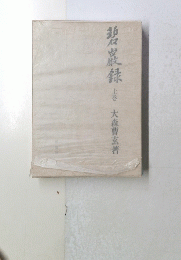 碧巖録
上巻
大森曹玄著